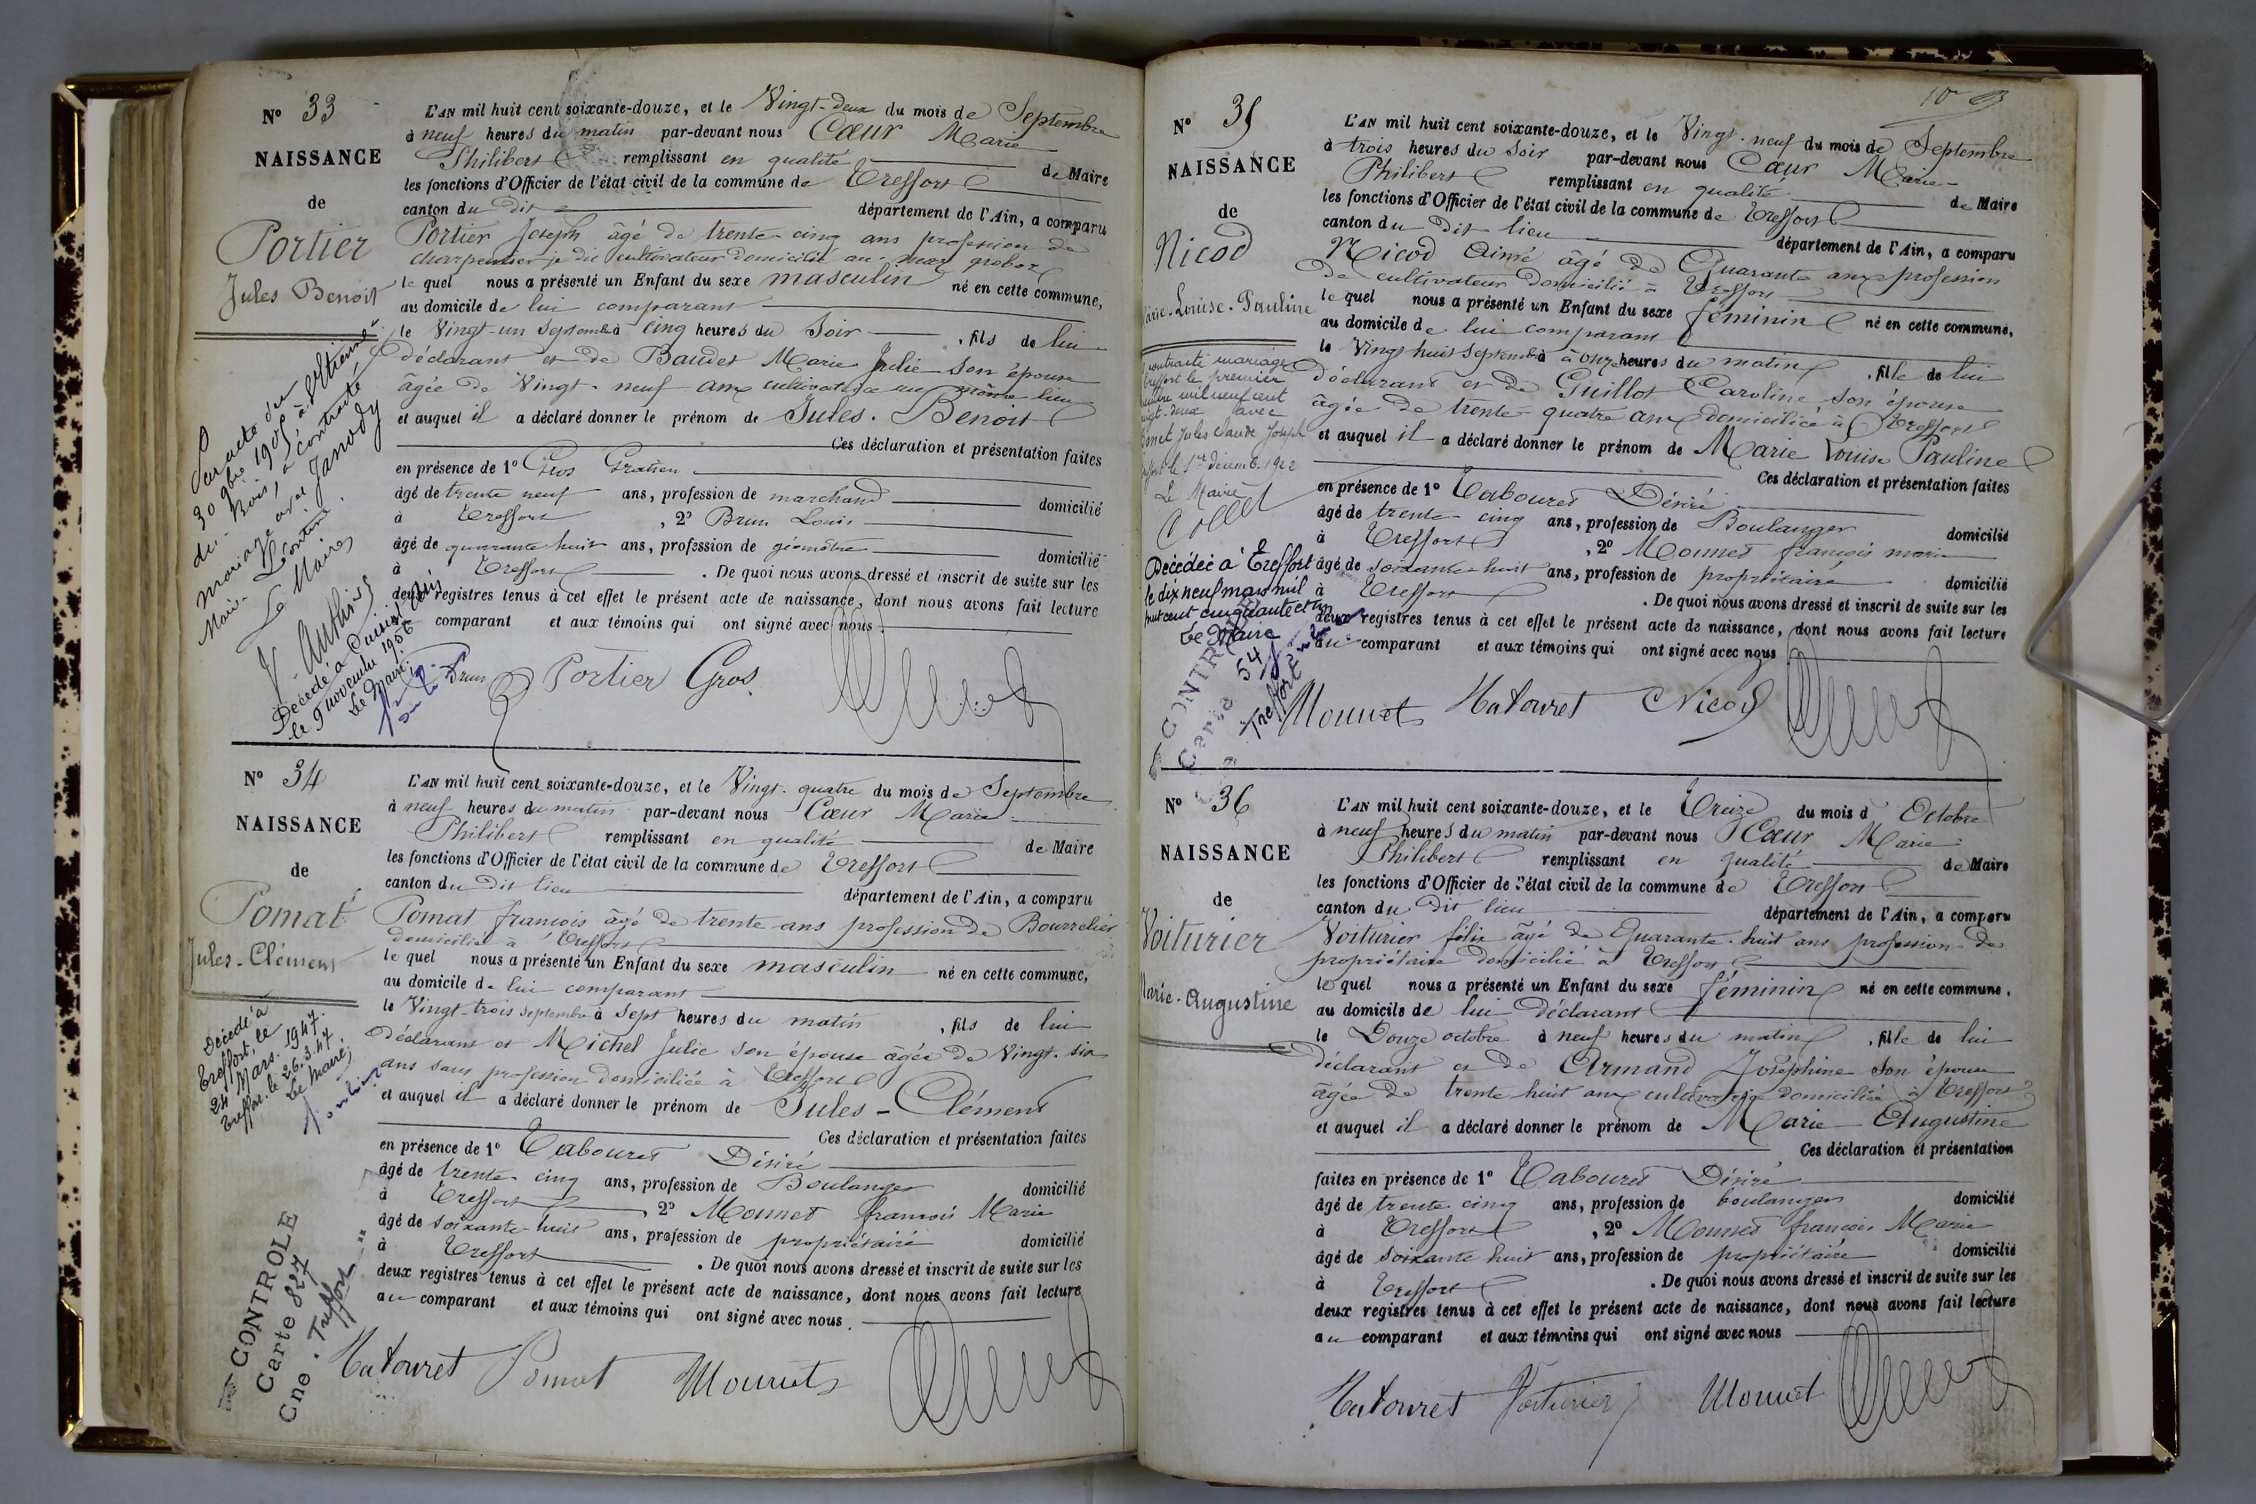 N° 33
NAISSANCE
de
Portier
Jules Benoit
L'AN mil huit cent soixante-douze, et le Vingt-deux du mois de Septembre
à neuf heures du matin par-devant nous Cœur Marie
Philibert remplissant en qualité de Maire
les fonctions d'Officier de l'état civil de la commune de Treffort
canton du dit département de l'Ain, a comparu
Portier Joseph âgé de trente-cinq ans profession de
charpentier je dis cultivateur domicilié au
le quel nous a présenté un Enfant du sexe masculin né en cette commune,
au domicile de lui comparant
le Vingt-un Septemb à cinq heures du Soir , fils de lui
déclarant et de Baudet Marie Julie son épouse
âgée de Vingt-neuf ans cultivatrice au même lieu
et auquel il a déclaré donner le prénom de Jules. Benoit
Ces déclaration et présentation faites
en présence de 1° Gros Gratien
âgé de trente neuf ans, profession de marchand domicilié
à Treffort , 2° Brun Louis
âgé de quarante huit ans, profession de géomètre domicilié
à Treffort . De quoi nous avons dressé et inscrit de suite sur les
deux registres tenus à cet effet le présent acte de naissance, dont nous avons fait lecture
comparant et aux témoins qui ont signé avec nous.
Brun Portier Gros
Par acte du
30 9bre 1905 à St Etienne
du-Bois, a contracté
mariage avec Janody
Marie-Léontine.
Le Maire
Décédé à Cuisiat Ain
le 9 novembre 1956
Le Maire.
N° 34
NAISSANCE
de
Pomat
Jules-Clément
L'AN mil huit cent soixante-douze, et le Vingt-quatre du mois de Septembre
à neuf heures du matin par-devant nous Cœur Marie
Philibert remplissant en qualité de Maire
les fonctions d'Officier de l'état civil de la commune de Treffort
canton du dit lieu département de l'Ain, a comparu
Pomat françois âgé de trente ans profession de Bourrelier
domicilié à Treffort
le quel nous a présenté un Enfant du sexe masculin né en cette commune,
au domicile de lui comparant
le Vingt-trois septembre à sept heures du matin , fils de lui
déclarant et Michel Julie son épouse âgée de Vingt-six
ans sans profession domiciliée à Treffort
et auquel il a déclaré donner le prénom de Jules-Clément
Ces déclaration et présentation faites
en présence de 1° Tabouret Désiré
âgé de trente-cinq ans, profession de Boulanger domicilié
à Treffort , 2° Monnet françois Marie
âgé de soixante-huit ans, profession de propriétaire domicilié
à Treffort . De quoi nous avons dressé et inscrit de suite sur les
deux registres tenus à cet effet le présent acte de naissance, dont nous avons fait lecture
au comparant et aux témoins qui ont signé avec nous.
Tabouret Pomat Mounet
Décédé à
Treffort, le
24 Mars. 1947.
Treffort. le 26.3.47
Le Maire,
CONTROLE
Carte 827
Cne. Treffort
10
N° 35
NAISSANCE
de
Nicod
Marie-Louise-Pauline
L'AN mil huit cent soixante-douze, et le Vingt-neuf du mois de Septembre
à trois heures du Soir par-devant nous Cœur Marie-
Philibert remplissant en qualité de Maire
les fonctions d'Officier de l'état civil de la commune de Treffort
canton du dit lieu département de l'Ain, a comparu
Nicod Aimé âgé de Quarante ans profession
de cultivateur domicilié à Treffort
le quel nous a présenté un Enfant du sexe féminin né en cette commune,
au domicile de lui comparant
le Vingt huit Septemb à onze heures du matin , fille de lui
déclarant et de Guillot Caroline son épouse
âgée de trente-quatre ans domiciliée à Treffort
et auquel il a déclaré donner le prénom de Marie Louise Pauline
Ces déclaration et présentation faites
en présence de 1° Tabouret Désiré
âgé de trente-cinq ans, profession de Boulanger domicilié
à Treffort , 2° Monnet françois marie
âgé de soixante-huit ans, profession de propriétaire domicilié
à Treffort . De quoi nous avons dressé et inscrit de suite sur les
deux registres tenus à cet effet le présent acte de naissance, dont nous avons fait lecture
au comparant et aux témoins qui ont signé avec nous
Mounet Tabouret Nicod
contracté mariage
Treffort le premier
mil neuf cent
vingt-deux avec
Jules Claude Joseph
Treffort le 1er décemb. 1922
Le Maire
Collet
Décédée à Treffort
le dix neuf mars mil
huit cent cinquante et un
Le Maire
CONTROLE
Carte 54
Treffort
N° 36
NAISSANCE
de
Voiturier
Marie-Augustine
L'AN mil huit cent soixante-douze, et le Treize du mois d Octobre
à neuf heures du matin par-devant nous Cœur Marie
Philibert remplissant en qualité de Maire
les fonctions d'Officier de l'état civil de la commune de Treffort
canton du dit lieu département de l'Ain, a comparu
Voiturier félix âgé de Quarante-huit ans profession de
propriétaire domicilié à Treffort
le quel nous a présenté un Enfant du sexe féminin né en cette commune,
au domicile de lui déclarant
le Douze octobre à neuf heures du matin , fille de lui
déclarant et de Armand Joséphine son épouse
âgée de trente huit ans cultivatrice domiciliée à Treffort
et auquel il a déclaré donner le prénom de Marie Augustine
Ces déclaration et présentation
faites en présence de 1° Tabouret Désiré
âgé de trente cinq ans, profession de boulanger domicilié
à Treffort , 2° Monnet françois Marie
âgé de soixante huit ans, profession de propriétaire domicilié
à Treffort . De quoi nous avons dressé et inscrit de suite sur les
deux registres tenus à cet effet le présent acte de naissance, dont nous avons fait lecture
au comparant et aux témoins qui ont signé avec nous
Tabouret Voiturier Mounet